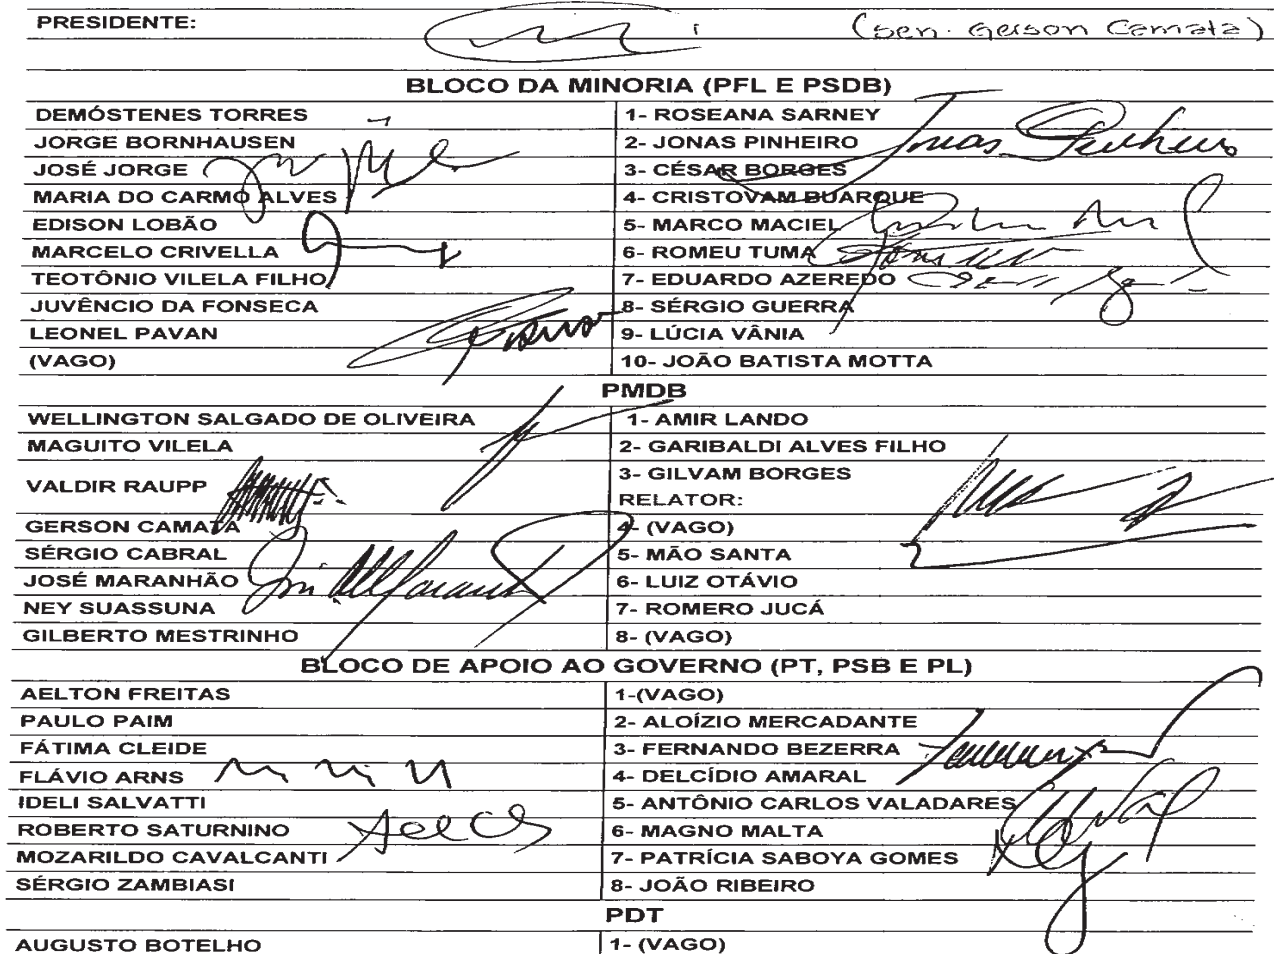 PRESIDENTE: (Sen. Gerson Camata)
BLOCO DA MINORIA (PFL E PSDB)
DEMÓSTENES TORRES 1- ROSEANA SARNEY
JORGE BORNHAUSEN 2- JONAS PINHEIRO Jonas Pinheiro
JOSÉ JORGE 3- CÉSAR BORGES
MARIA DO CARMO ALVES 4- CRISTOVAM BUARQUE
EDISON LOBÃO 5- MARCO MACIEL
MARCELO CRIVELLA 6- ROMEU TUMA
TEOTÔNIO VILELA FILHO 7- EDUARDO AZEREDO
JUVÊNCIO DA FONSECA 8- SÉRGIO GUERRA
LEONEL PAVAN 9- LÚCIA VÂNIA
(VAGO) 10- JOÃO BATISTA MOTTA
PMDB
WELLINGTON SALGADO DE OLIVEIRA 1- AMIR LANDO
MAGUITO VILELA 2- GARIBALDI ALVES FILHO
VALDIR RAUPP 3- GILVAM BORGES
RELATOR:
GERSON CAMATA 4- (VAGO)
SÉRGIO CABRAL 5- MÃO SANTA
JOSÉ MARANHÃO 6- LUIZ OTÁVIO
NEY SUASSUNA 7- ROMERO JUCÁ
GILBERTO MESTRINHO 8- (VAGO)
BLOCO DE APOIO AO GOVERNO (PT, PSB E PL)
AELTON FREITAS 1-(VAGO)
PAULO PAIM 2- ALOÍZIO MERCADANTE
FÁTIMA CLEIDE 3- FERNANDO BEZERRA
FLÁVIO ARNS 4- DELCÍDIO AMARAL
IDELI SALVATTI 5- ANTÔNIO CARLOS VALADARES
ROBERTO SATURNINO 6- MAGNO MALTA
MOZARILDO CAVALCANTI 7- PATRÍCIA SABOYA GOMES
SÉRGIO ZAMBIASI 8- JOÃO RIBEIRO
PDT
AUGUSTO BOTELHO 1- (VAGO)